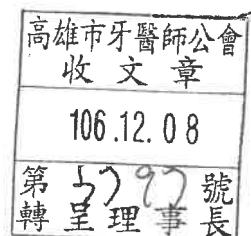 高雄市牙醫師公會
收文章
106.12.08
第 號
轉呈理事長